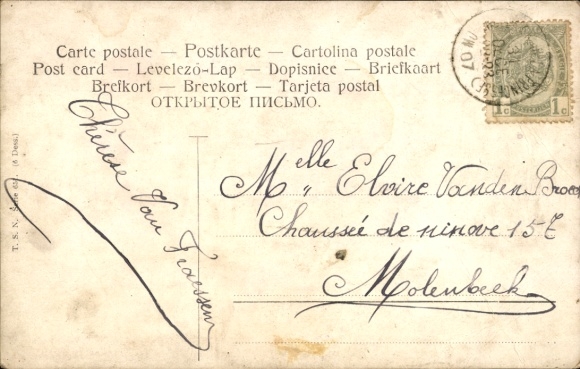 Carte postale — Postkarte — Cartolina postale
Post card — Levelező-Lap — Dopisnice — Briefkaart
Brefkort — Brevkort — Tarjeta postal
ОТКРЫТОЕ ПИСЬМО.
1c 1c
07
Thérèse Van
T. S. N. Série (6 Dess.)
Melle " Elvire Vanden
Chaussée de ninove 157
Molenbeek